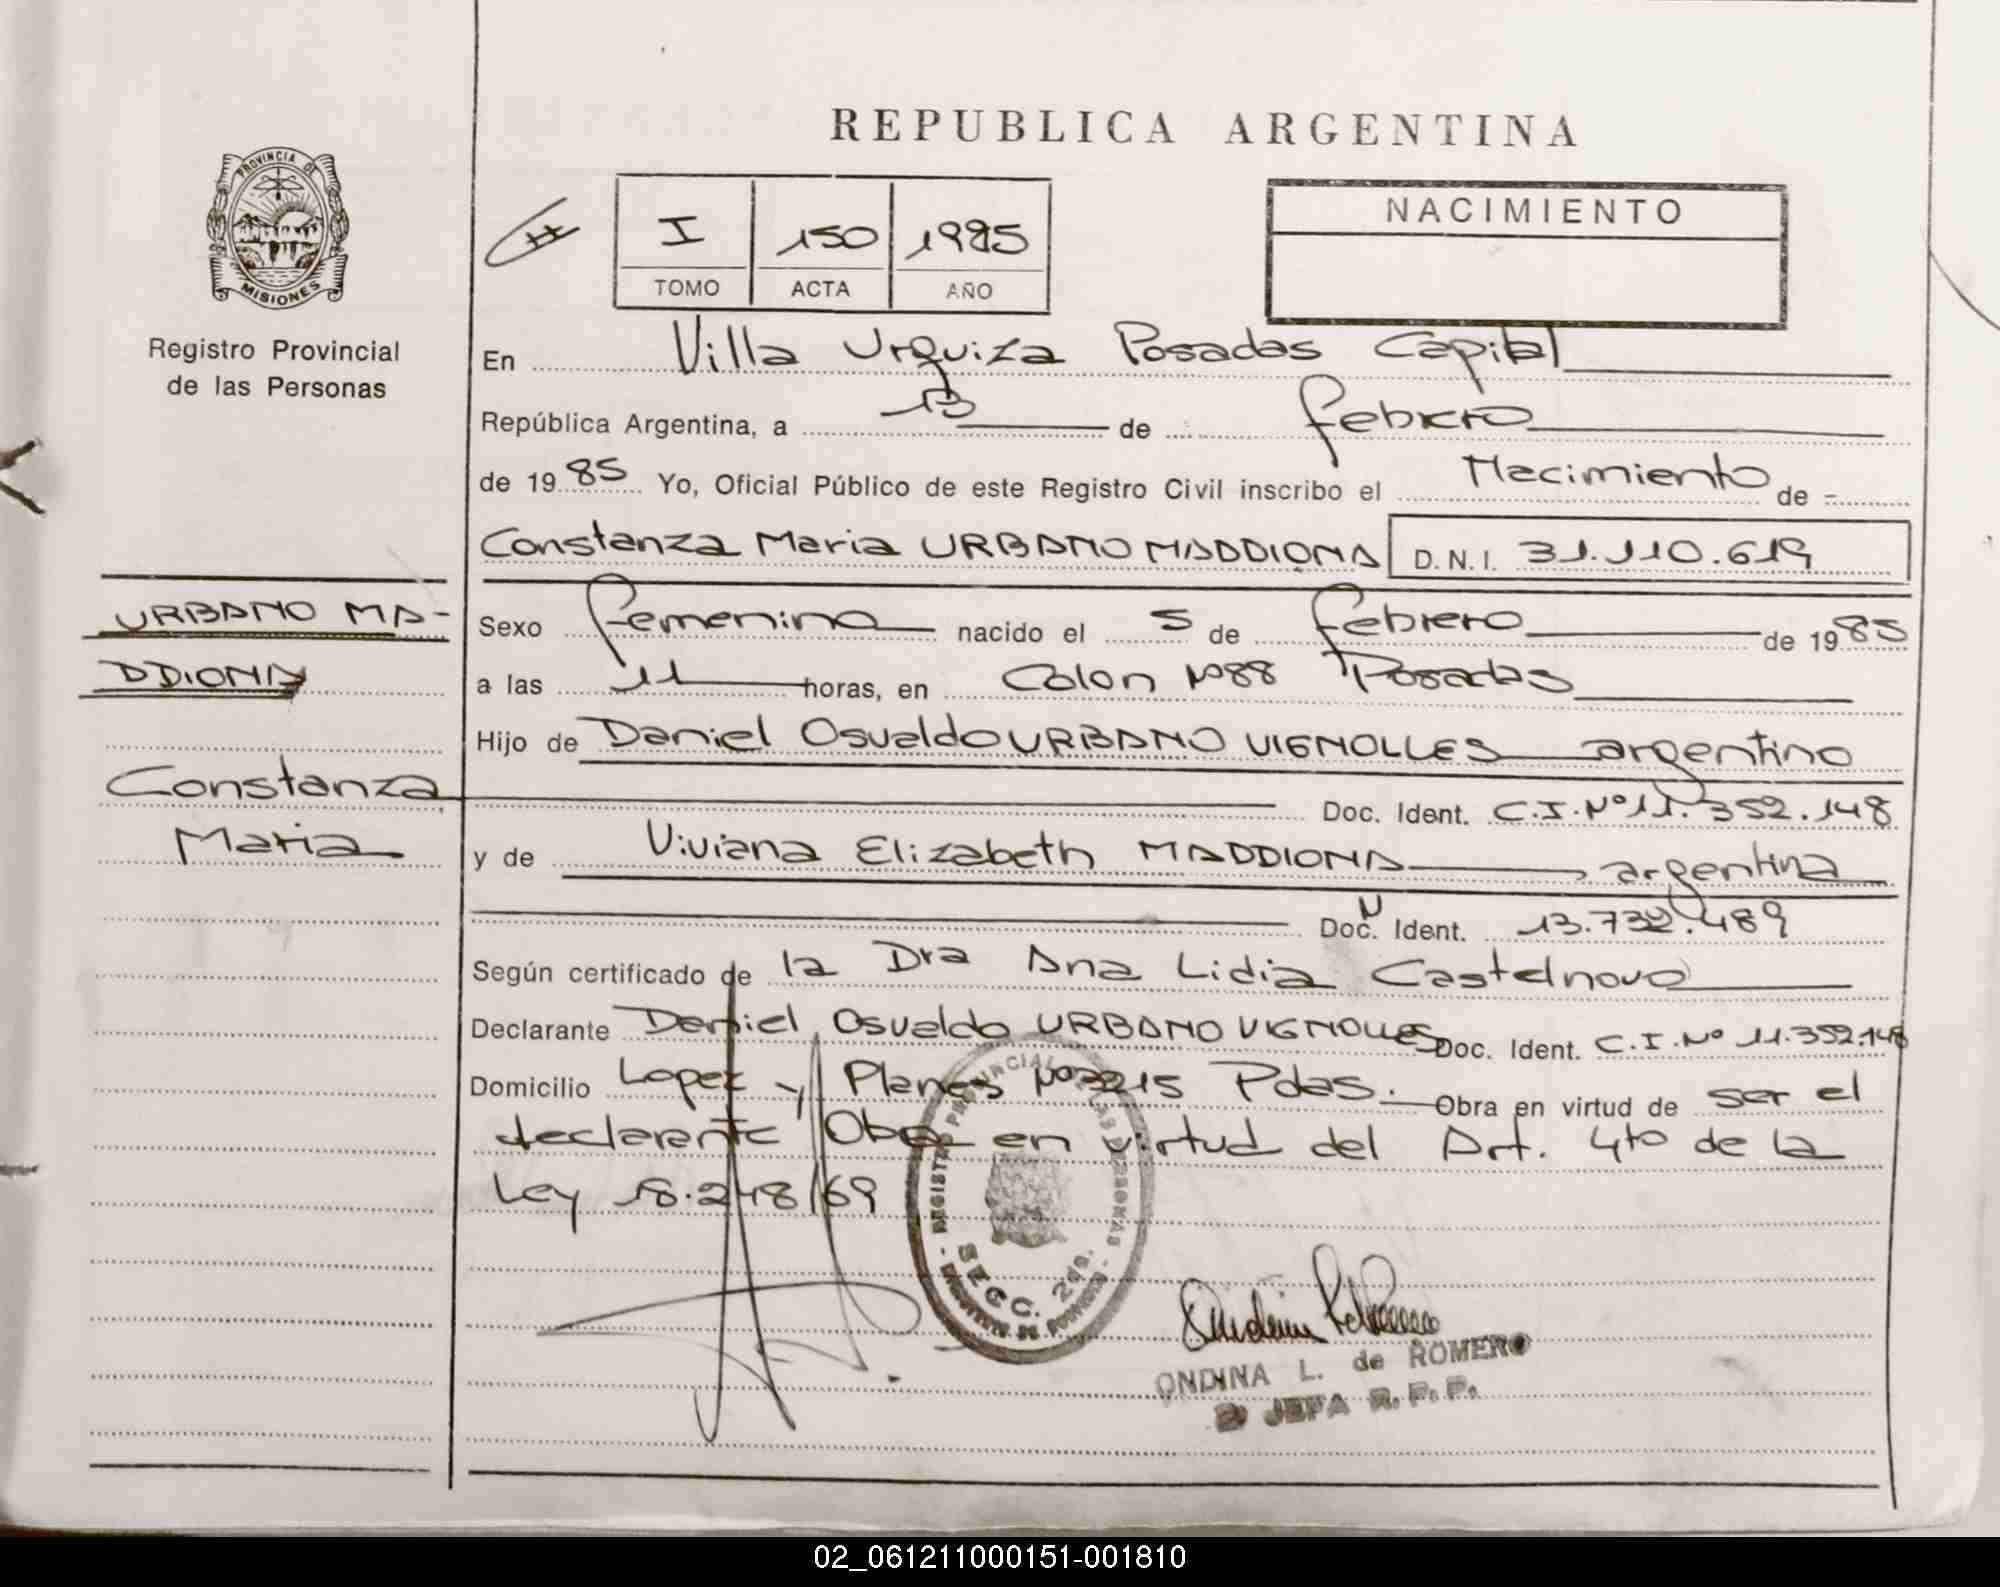 REPUBLICA ARGENTINA
PROVINCIA DE
MISIONES
Registro Provincial
de las Personas
I 150 1985
TOMO ACTA AÑO
NACIMIENTO
En Villa Urquiza Posadas Capital
República Argentina, a 13 de febrero
de 1985 Yo, Oficial Público de este Registro Civil inscribo el Nacimiento de
Constanza Maria URBANO MADDIONA D.N.I. 31.110.619
URBANO MA-
DDIONA
Constanza
Maria
Sexo femenino nacido el 5 de febrero de 1985
a las 11 horas, en Colon Nº88 Posadas
Hijo de Daniel Osvaldo URBANO VIGNOLLES argentino
Doc. Ident. C.I.Nº11.352.148
y de Viviana Elizabeth MADDIONA argentina
Doc. N Ident. 13.732.489
Según certificado de la Dra Ana Lidia Castelnovo
Declarante Daniel Osvaldo URBANO VIGNOLLES Doc. Ident. C.I.Nº 11.352.148
Domicilio Lopez y Planes Nº3215 Pdas. Obra en virtud de ser el
declarante Obra en virtud del Art. 4to de la
Ley 18.248/69
REGISTRO PROVINCIAL DE LAS PERSONAS
SECC. 2da.
ONDINA L. de ROMERO
JEFA R.P.P.
02_061211000151-001810